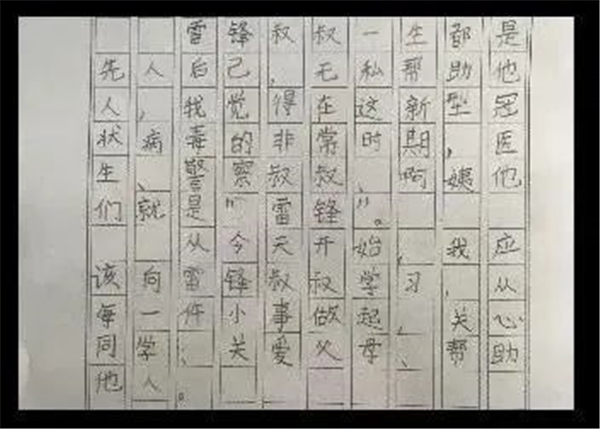 雷锋叔叔一生都是
先人后己,无私帮助他
人,我觉得在这新型冠
状病毒的非常时期,医
生、警察叔叔、阿姨他
们就是“雷锋”。
从今天开始,我应
该向雷锋叔叔学习,从
每一件小事做起,关心
同学、关爱父母、帮助
他人。